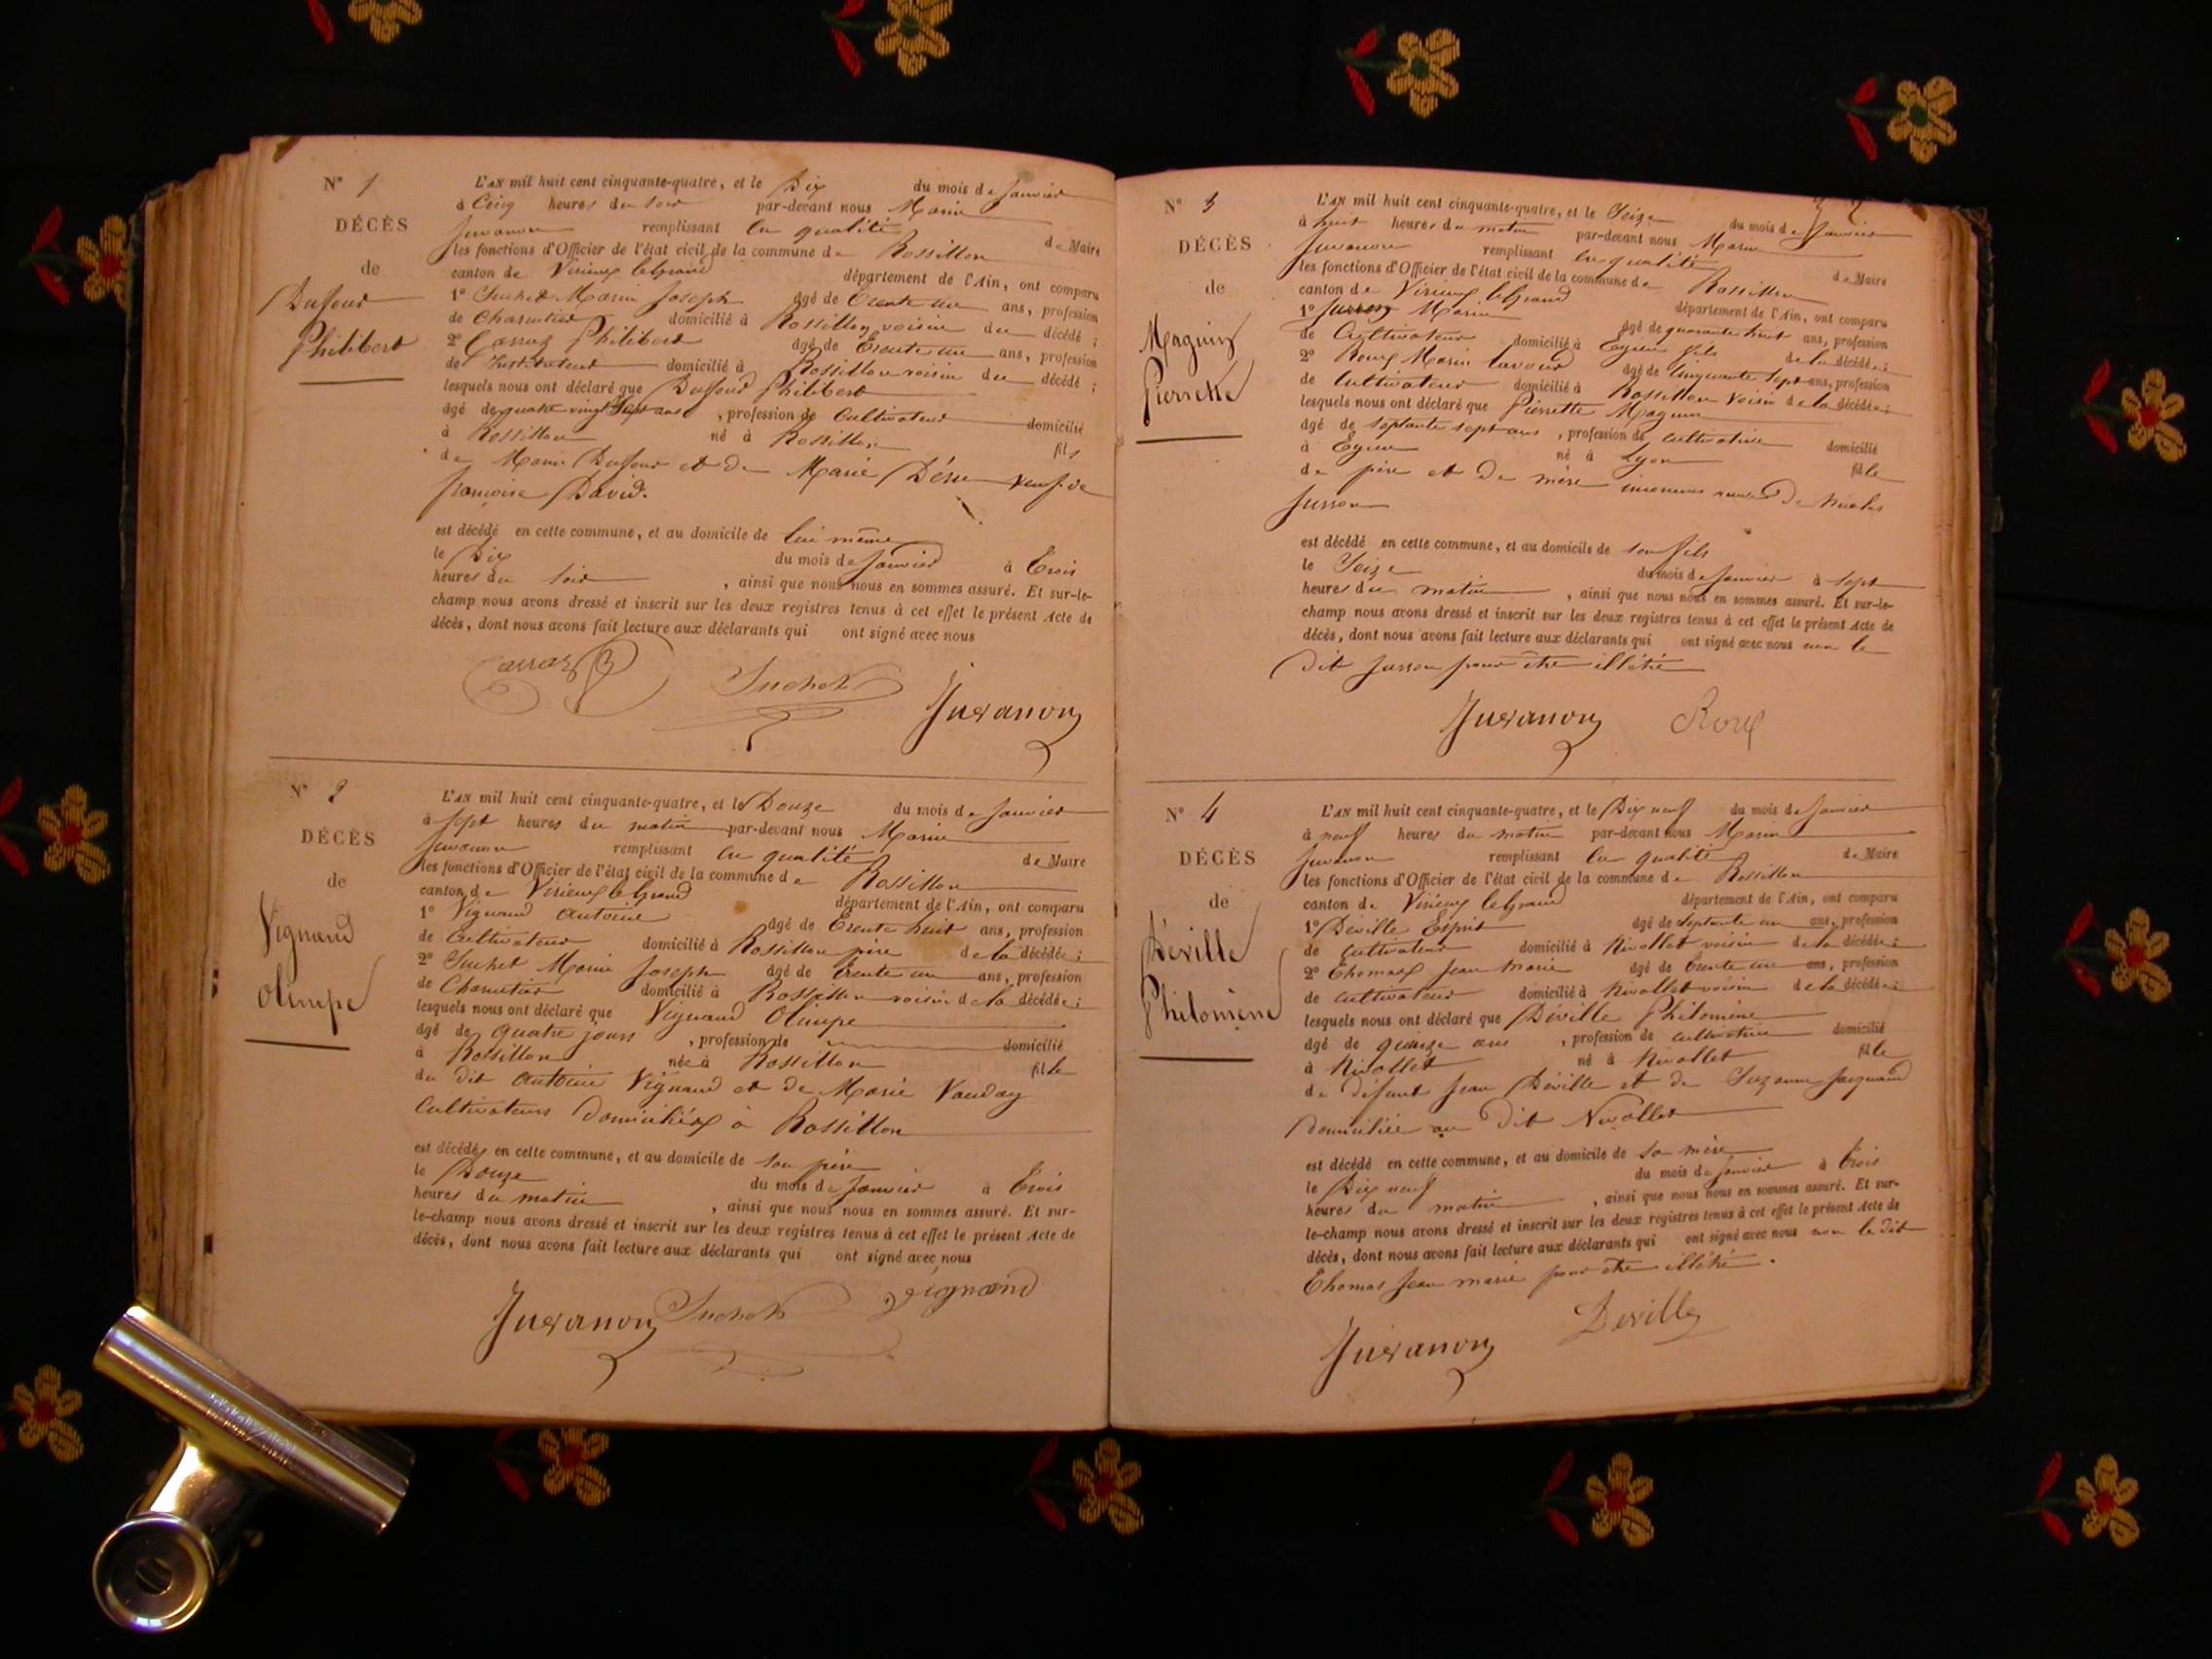 N° 1
DÉCÈS
de
Duffour
Philibert
L'AN mil huit cent cinquante-quatre, et le Dix du mois de Janvier
à Cinq heures du soir par-devant nous Marin
Juvanon remplissant en qualité de Maire
les fonctions d'Officier de l'état civil de la commune de Rossillon
canton de Virieux le Grand département de l'Ain, ont comparu
1° Suchet Marin Joseph âgé de trente un ans, profession
de Charcutier domicilié à Rossillon voisin du décédé ;
2° Carraz Philibert âgé de trente un ans, profession
de Instituteur domicilié à Rossillon voisin du décédé ;
lesquels nous ont déclaré que Duffour Philibert
âgé de quatre vingt sept ans, profession de Cultivateur domicilié
à Rossillon né à Rossillon fils
de Marin Duffour et de Marie veuf de
françoise David.
est décédé en cette commune, et au domicile de lui même
le Dix du mois de Janvier à trois
heures du soir, ainsi que nous nous en sommes assuré. Et sur-le-
champ nous avons dressé et inscrit sur les deux registres tenus à cet effet le présent Acte de
décès, dont nous avons fait lecture aux déclarants qui ont signé avec nous
Carraz Suchet Juvanon
N° 2
DÉCÈS
de
Vignand
Olimpe
L'AN mil huit cent cinquante-quatre, et le Douze du mois de Janvier
à sept heures du matin par-devant nous Marin
Juvanon remplissant en qualité de Maire
les fonctions d'Officier de l'état civil de la commune de Rossillon
canton de Virieux le Grand département de l'Ain, ont comparu
1° Vignand Antoine âgé de trente huit ans, profession
de Cultivateur domicilié à Rossillon père de la décédée ;
2° Suchet Marin Joseph âgé de trente un ans, profession
de Charcutier domicilié à Rossillon voisin de la décédée ;
lesquels nous ont déclaré que Vignand Olimpe
âgé de quatre jours, profession de domicilié
à Rossillon née à Rossillon fille
du dit Antoine Vignand et de Marie Vauday
Cultivateurs Domiciliés à Rossillon
est décédée en cette commune, et au domicile de son père
le Douze du mois de Janvier à trois
heures du matin, ainsi que nous nous en sommes assuré. Et sur-
le-champ nous avons dressé et inscrit sur les deux registres tenus à cet effet le présent Acte de
décès, dont nous avons fait lecture aux déclarants qui ont signé avec nous
Juvanon Suchet Vignand
N° 3
DÉCÈS
de
Magnin
Pierrette
L'AN mil huit cent cinquante-quatre, et le Seize du mois de Janvier
à huit heures du matin par-devant nous Marin
Juvanon remplissant en qualité de Maire
les fonctions d'Officier de l'état civil de la commune de Rossillon
canton de Virieux le Grand département de l'Ain, ont comparu
1° Jusson Marin âgé de quarante huit ans, profession
de Cultivateur domicilié à Egieu fils de la décédée ;
2° Roux Marin âgé de Cinquante sept ans, profession
de Cultivateur domicilié à Rossillon voisin de la décédée ;
lesquels nous ont déclaré que Pierrette Magnin
âgé de septante sept ans, profession de cultivatrice domicilié
à Egieu né à Lyon fille
de père et de mère inconnus veuve de Nicolas
Jusson
est décédé en cette commune, et au domicile de son fils
le Seize du mois de Janvier à sept
heures du matin, ainsi que nous nous en sommes assuré. Et sur-le-
champ nous avons dressé et inscrit sur les deux registres tenus à cet effet le présent Acte de
décès, dont nous avons fait lecture aux déclarants qui ont signé avec nous non le
dit Jusson pour être illétré
Juvanon Roux
N° 4
DÉCÈS
de
Déville
Philomène
L'AN mil huit cent cinquante-quatre, et le Dix neuf du mois de Janvier
à neuf heures du matin par-devant nous Marin
Juvanon remplissant en qualité de Maire
les fonctions d'Officier de l'état civil de la commune de Rossillon
canton de Virieux le Grand département de l'Ain, ont comparu
1° Déville Esprit âgé de septante un ans, profession
de cultivateur domicilié à Nivollet voisin de la décédée ;
2° Thomas Jean Marie âgé de trente un ans, profession
de cultivateur domicilié à Nivollet voisin de la décédée ;
lesquels nous ont déclaré que Déville Philomène
âgé de quinze ans, profession de cultivatrice domicilié
à Nivollet né à Nivollet fille
de défunt Jean Déville et de Suzanne Jacquand
domiciliée au dit Nivollet
est décédé en cette commune, et au domicile de sa mère
le Dix neuf du mois de Janvier à trois
heures du matin, ainsi que nous nous en sommes assuré. Et sur-
le-champ nous avons dressé et inscrit sur les deux registres tenus à cet effet le présent Acte de
décès, dont nous avons fait lecture aux déclarants qui ont signé avec nous non le dit
Thomas Jean marie pour être illétré.
Juvanon Deville